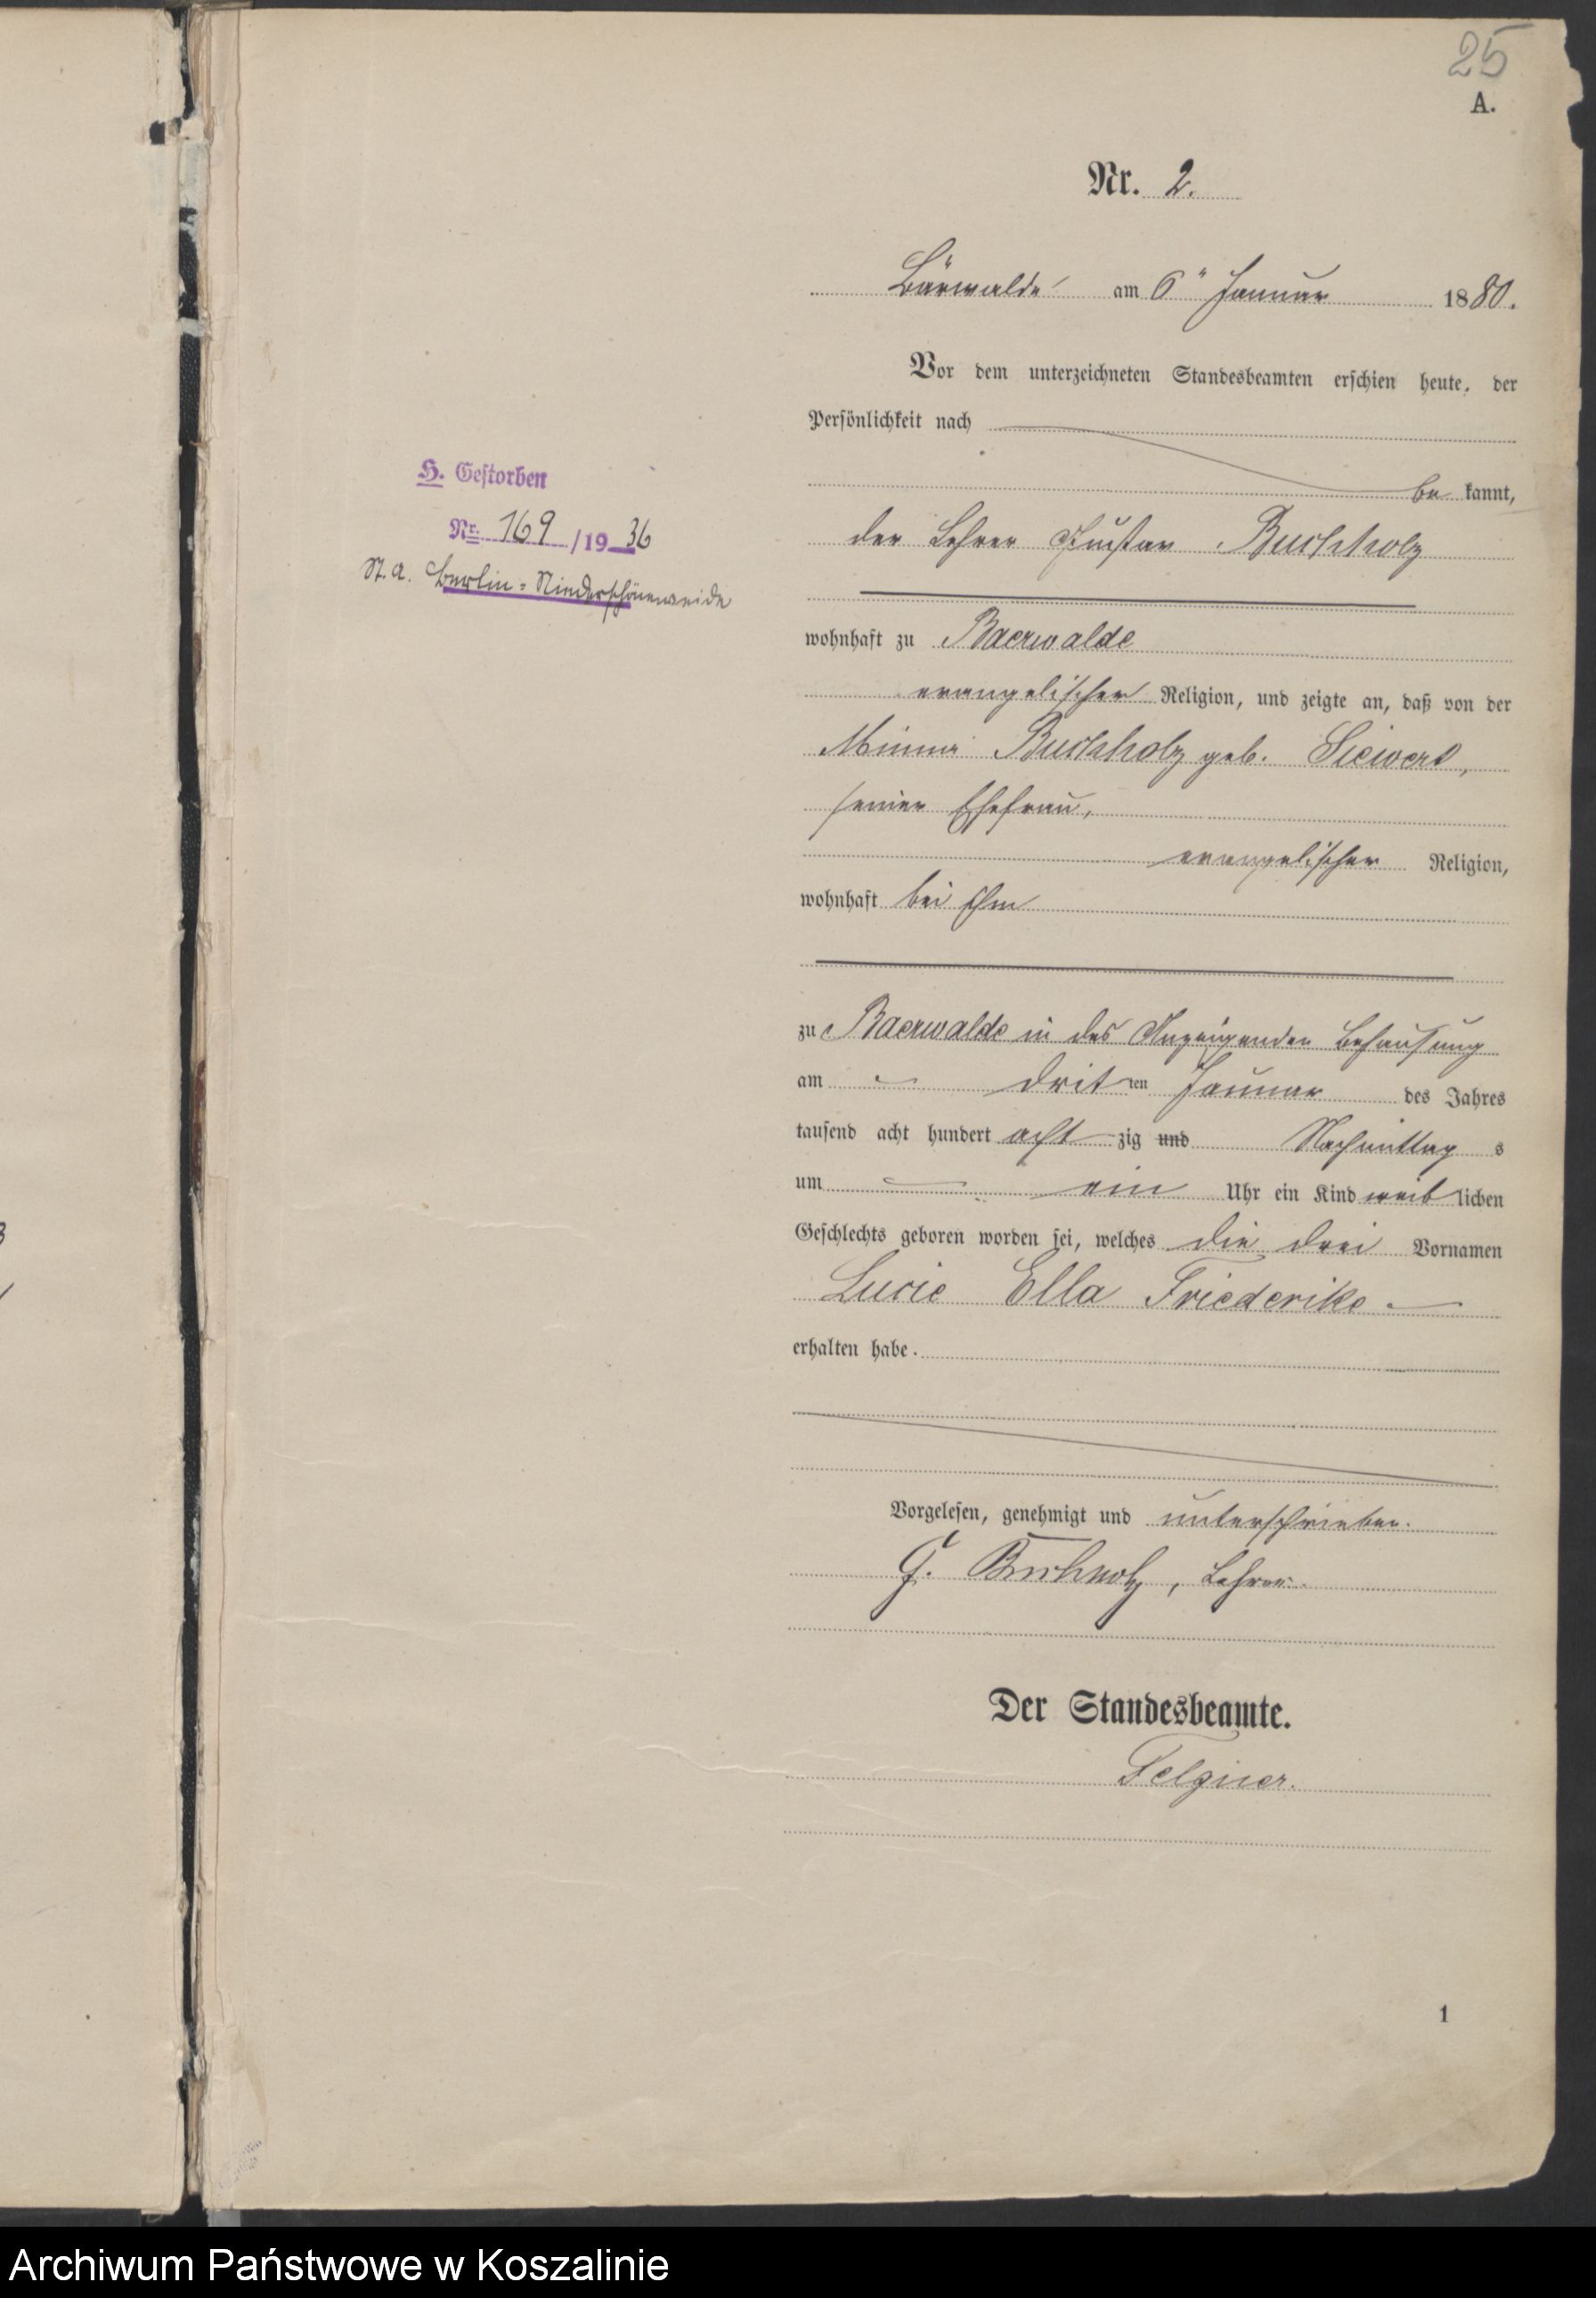 25
A.
Nr. 2.
Bärwalde am 6" Januar 1880.
Vor dem unterzeichneten Standesbeamten erschien heute, der
Persönlichkeit nach
be kannt,
der Lehrer Gustav Buchholz
wohnhaft zu Baerwalde
evangelischer Religion, und zeigte an, daß von der
Minna Buchholz geb. Siewert,
seiner Ehefrau,
evangelischer Religion,
wohnhaft bei ihm
zu Baerwalde in des Anzeigenden Behausung
am dritten Januar des Jahres
tausend acht hundert acht zig und Nachmittag s
um ein Uhr ein Kind weib lichen
Geschlechts geboren worden sei, welches die drei Vornamen
Lucie Ella Friederike
erhalten habe.
Vorgelesen, genehmigt und unterschrieben.
G. Buchholz, Lehrer.
Der Standesbeamte.
Felgner.
1
H. Gestorben
Nr. 169/1936
St. A. Berlin-Niederschöneweide
Archiwum Państwowe w Koszalinie